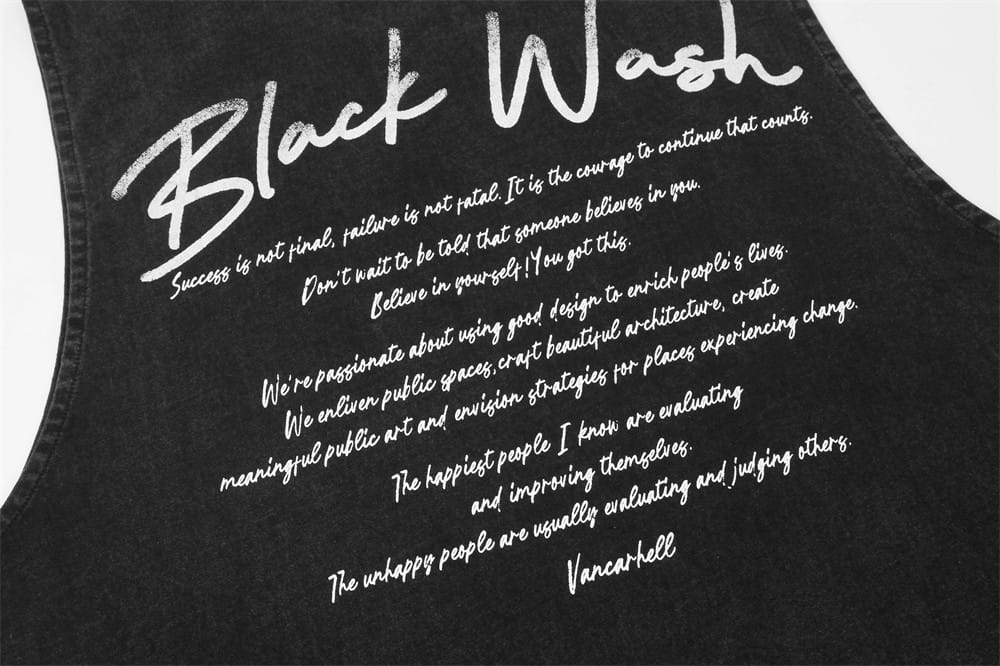 Black Wash
Success is not final, failure is not fatal. It is the courage to continue that counts.
Don't wait to be told that someone believes in you.
Believe in yourself! You got this.
We're passionate about using good design to enrich people's lives.
We enliven public spaces, craft beautiful architecture, create
meaningful public art and envision strategies for places experiencing change.
The happiest people I know are evaluating
and improving themselves.
The unhappy people are usually evaluating and judging others.
Vancarhell